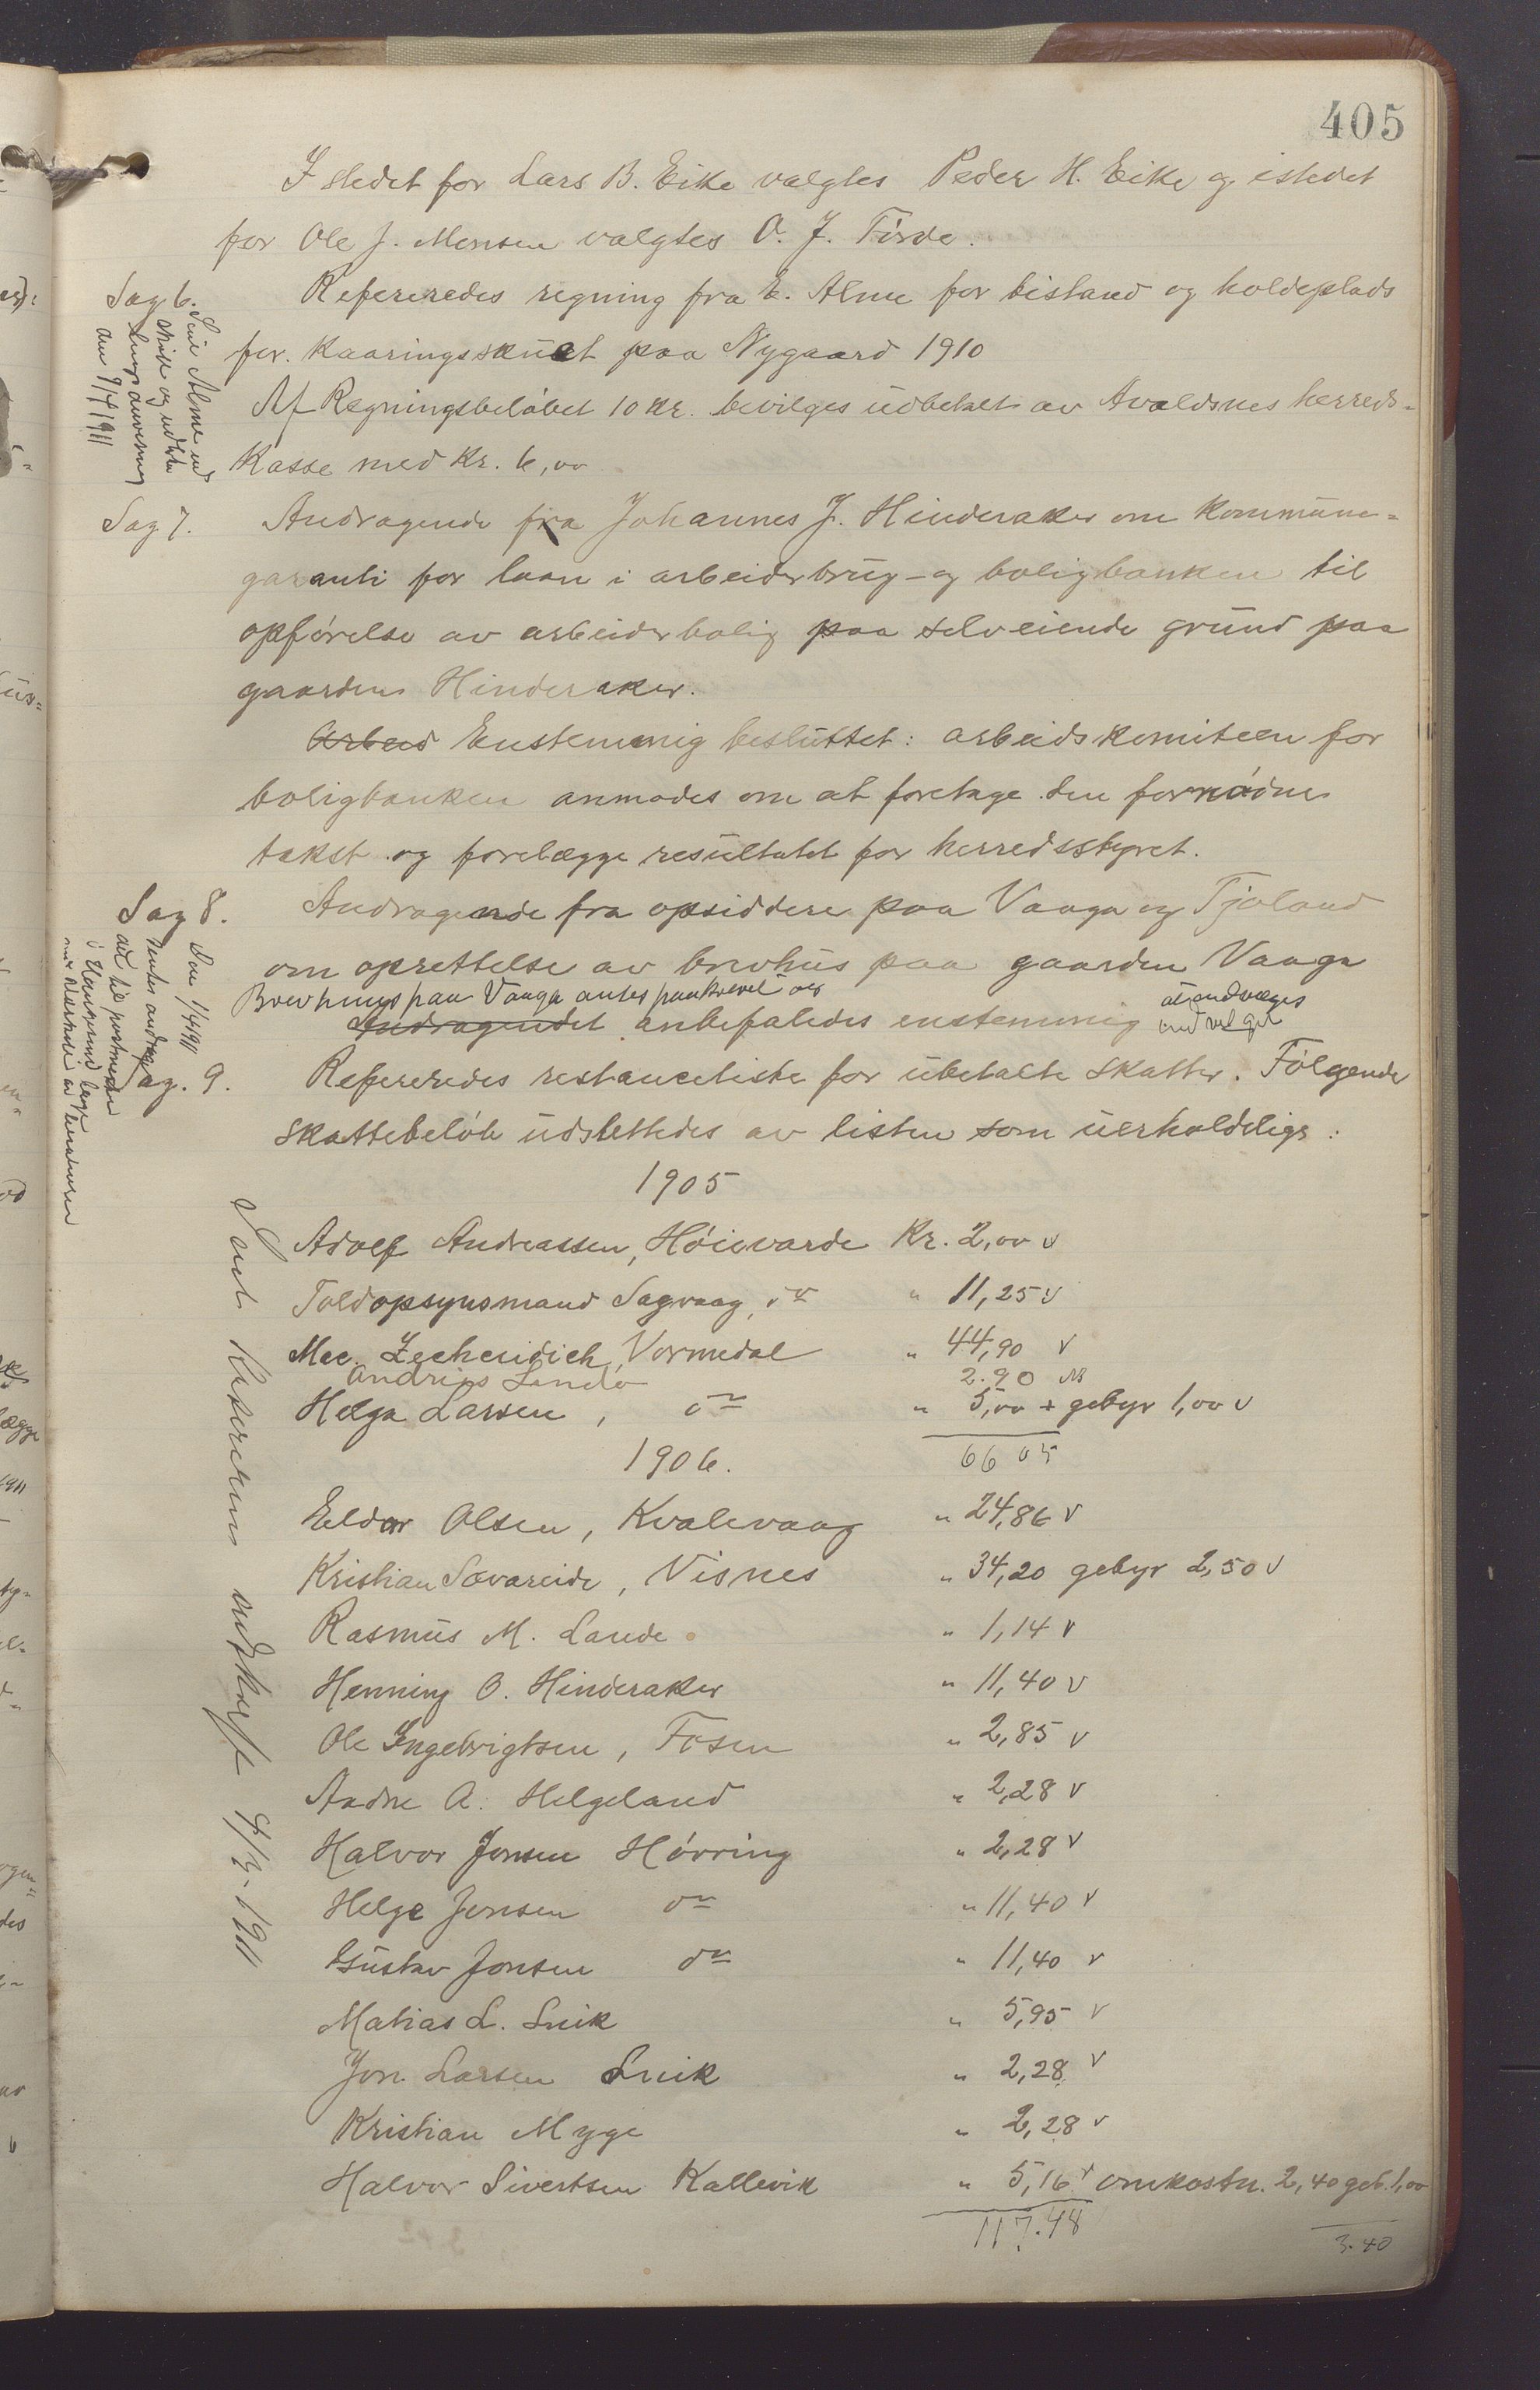 405
I stedet for Lars B. Eike valgtes Peder H. Eike og istedet
for Ole J. Monsen valgtes O. J. Förde.
Sag 6.
Refereredes regning fra E. Alne for bistand og holdeplads
for Kaaringsskuet paa Nygaard 1910
Af Regningsbeløbet 10 Kr. bevilges udbetalt av Avaldsnes herreds-
kasse med Kr. 6,00
den 9/4 1911
Sag 7.
Andragende fra Johannes J. Hinderaker om kommune-
garanti for laan i arbeiderbrug- og boligbanken til
opförelse av arbeiderbolig paa selveiende grund paa
gaarden Hinderaker.
Arbeid Enstemmig besluttet: arbeidskomiteen for
boligbanken anmodes om at foretage den fornödne
takst og forelægge resultatet for herredsstyret.
Sag 8.
Andragende fra opsiddere paa Vaaga og Tjøland
om oprettelse av brevhus paa gaarden Vaaga
Brevhus paa Vaaga antes paakrævet og
Andragendet anbefaledes enstemmig
Sag. 9.
Refereredes restanceliste for ubetalte skatter. Følgende
skattebeløb udslettedes av listen som uerholdelige:
1905
Adolf Andreassen, Höievarde Kr. 2,00 v
Toldopsynsmand Sagvaag, do " 11,25 v
Mec. Zechenidich, Vormedal " 44,90 v
Andreas Sundö 2.90
Helga Larsen, do " 5,00 + gebyr 1,00 v
66 05
1906.
Eldar Olsen, Kvalevaag " 24,86 v
Kristian Sövareide, Visnes " 34,20 gebyr 2,50 v
Rasmus M. Lande " 1,14 v
Henning O. Hinderaker " 11,40 v
Ole Ingebrigtsen, Fosen " 2,85 v
Aadne A. Helgeland " 2,28 v
Halvor Jonsen Hövring " 2,28 v
Helge Jensen do " 11,40 v
Gustav Jonsen do " 11,40 v
Matias L. Snik " 5,95 v
Jon Larsen Snik " 2,28 v
Kristian Myge " 2,28 v
Halvor Sivertsen Kallevik " 5,16 v omkostn. 2,40 geb. 1,00
117.48
3.40
Sendt Kasereren udskrift 4/3-1911